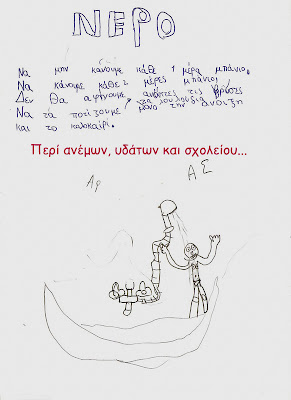 ΝΕΡΟ
Να μην κάνουμε κάθε 1 μέρα μπάνιο.
Να κάνουμε κάθε 2 μέρες μπάνιο.
Δεν θα αφήνουμε τις βρύσες
τα λουλούδια
Να τα ποτίζουμε μόνο την άνοιξη
και το καλοκαίρι.
Περί ανέμων, υδάτων και σχολείου...
Αρ ΑΣ